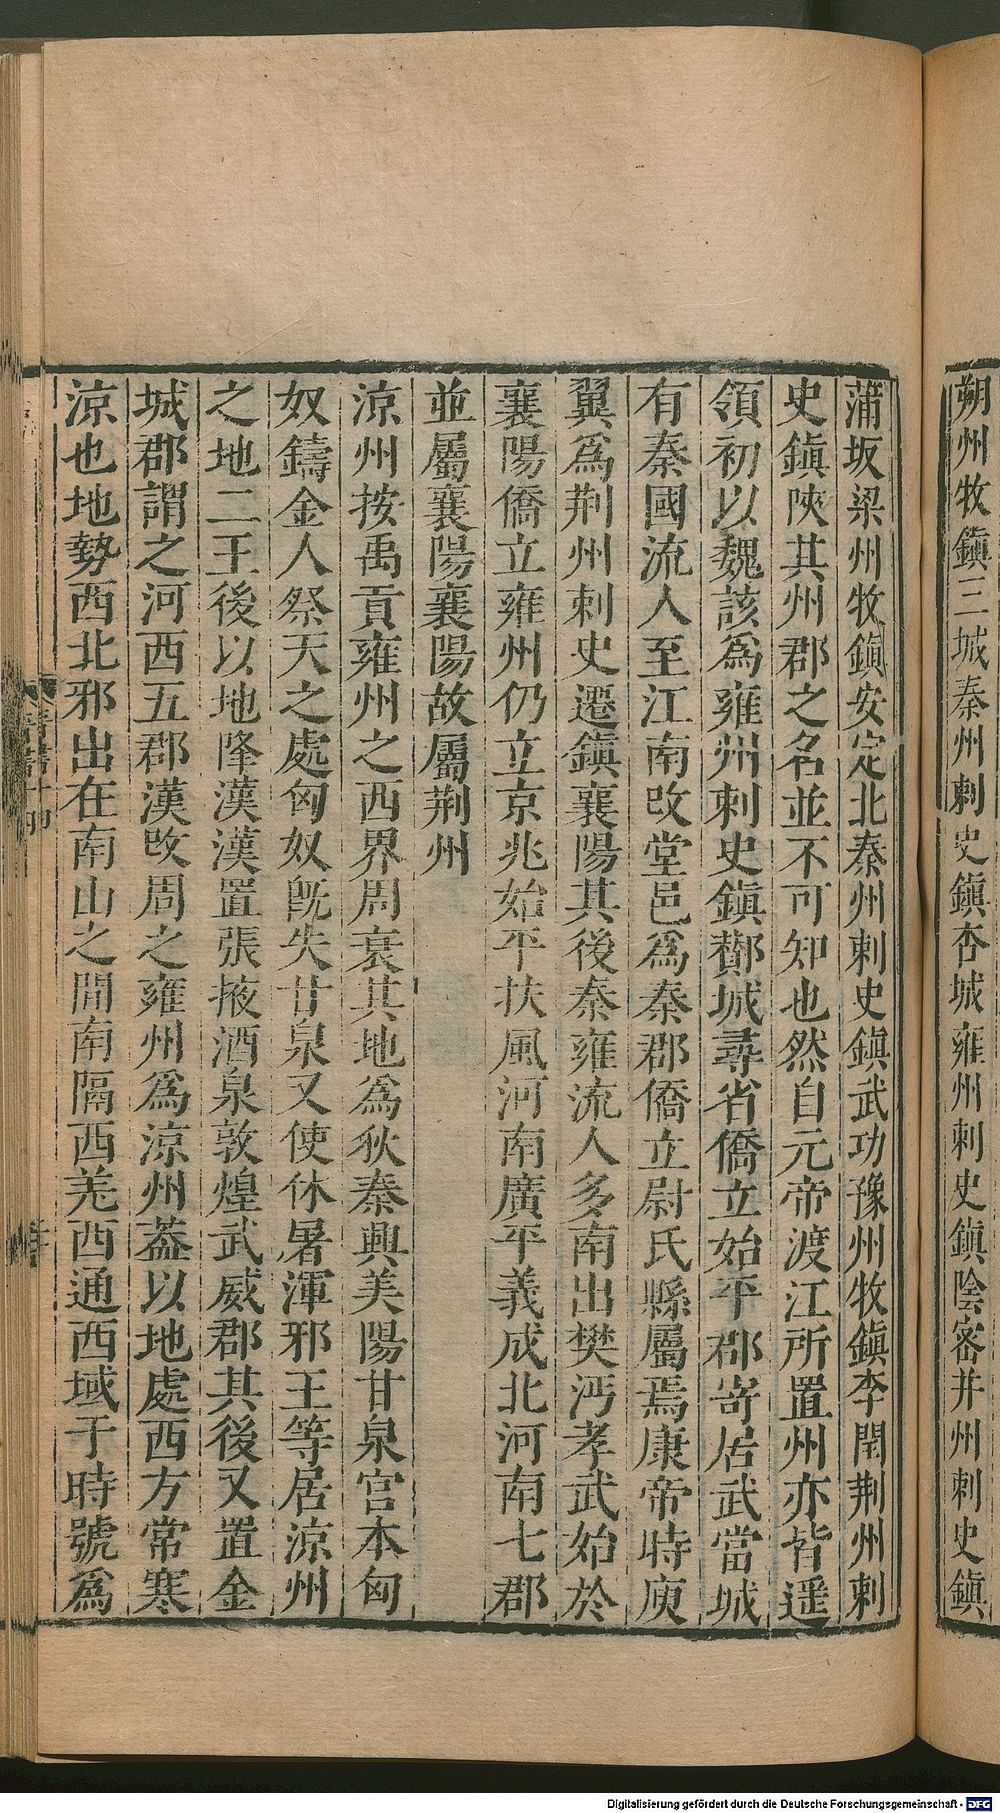 朔州牧鎭三城秦州刺史鎭杏城雍州刺史鎭陰密并州刺史鎭
蒲坂梁州牧鎭安定北秦州刺史鎭武功豫州牧鎭李閏荆州刺
史鎭陝其州郡之名並不可知也然自元帝渡江所置州亦皆遥
領初以魏該爲雍州刺史鎭酇城尋省僑立始平郡寄居武當城
有秦國流人至江南改堂邑爲秦郡僑立尉氏縣屬焉康帝時庾
翼爲荆州刺史遷鎭襄陽其後秦雍流人多南出樊沔孝武始於
襄陽僑立雍州仍立京兆始平扶風河南廣平義成北河南七郡
並屬襄陽襄陽故屬荆州
凉州按禹貢雍州之西界周衰其地爲狄秦興美陽甘泉宮本匈
奴鑄金人祭天之處匈奴旣失甘泉又使休暑渾邪王等居凉州
之地二王後以地降漢漢置張掖酒泉敦煌武威郡其後又置金
城郡謂之河西五郡漢改周之雍州爲凉州葢以地處西方常寒
凉也地勢西北邪出在南山之間南隔西羌西通西域于時號爲
Digitalisierung gefördert durch die Deutsche Forschungsgemeinschaft - DFG